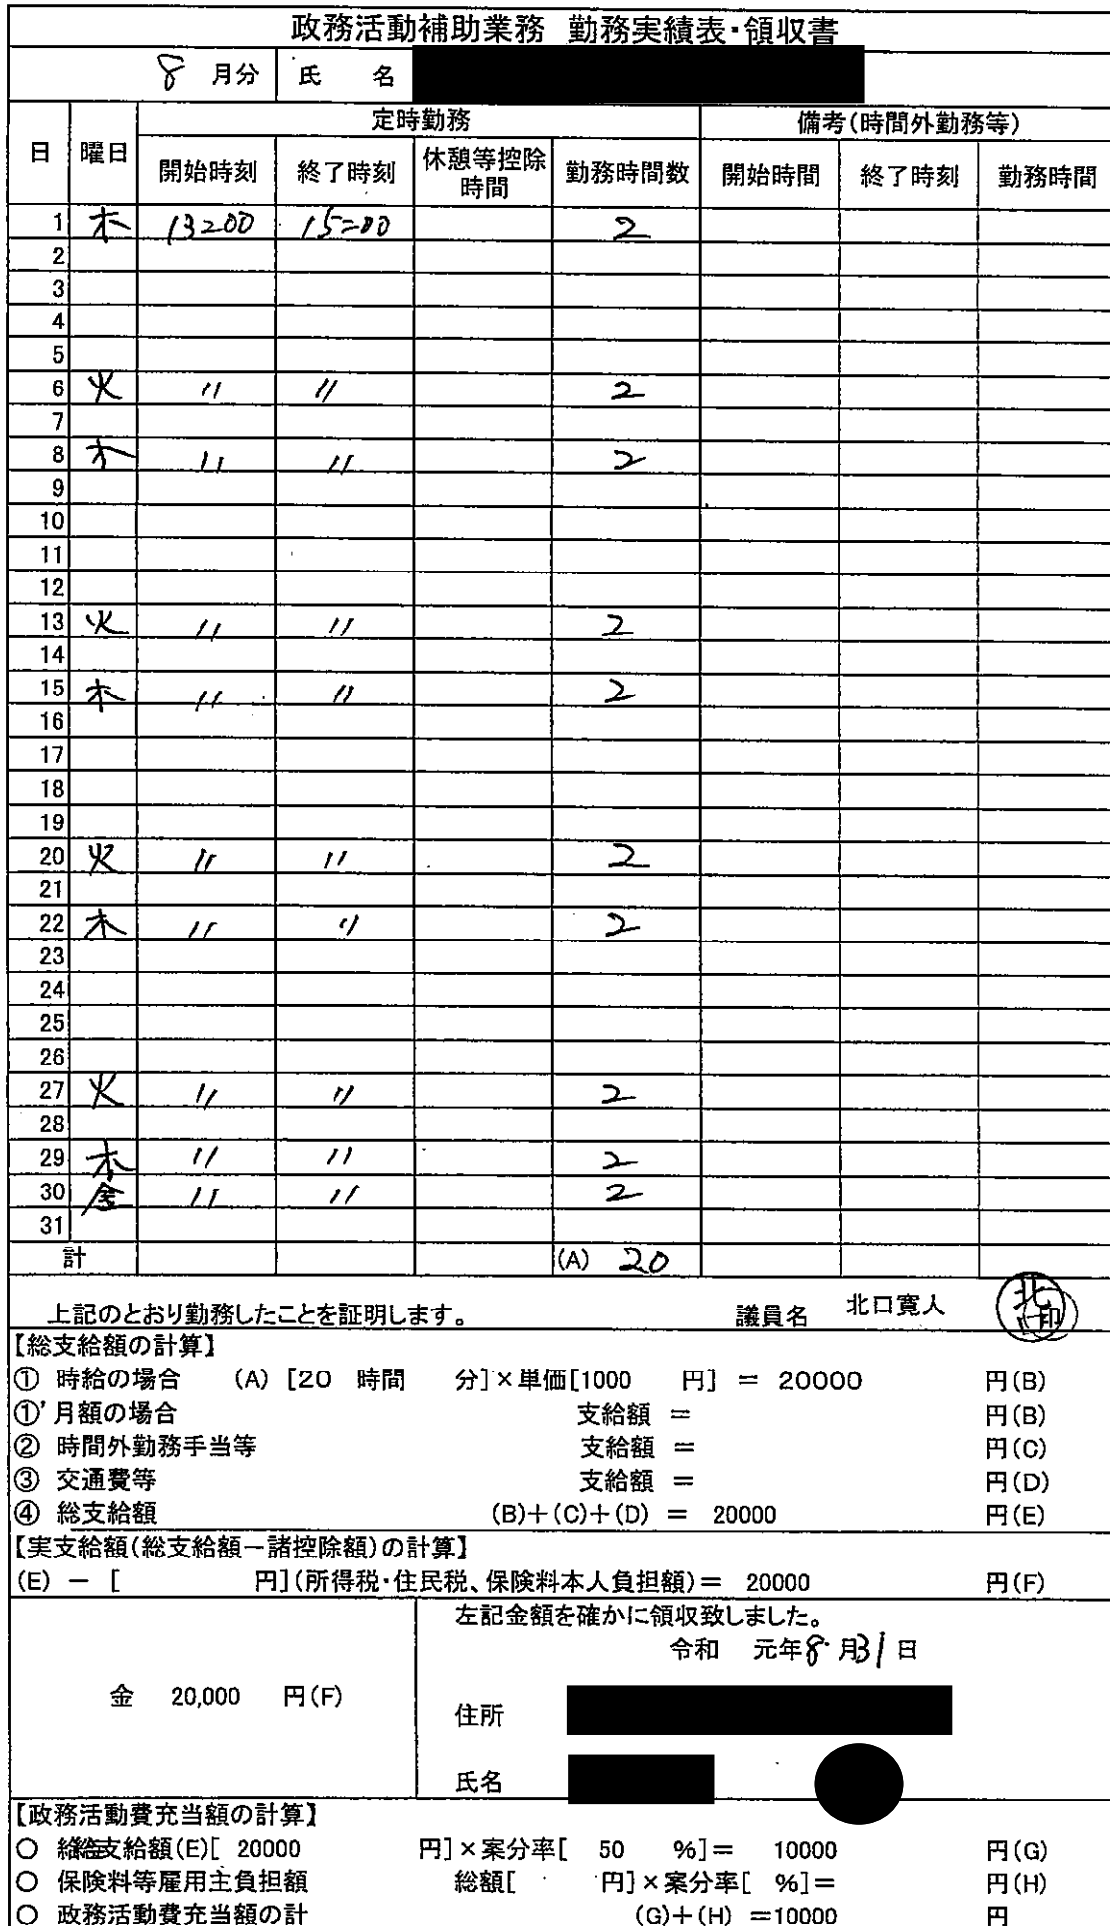 政務活動補助業務 勤務実績表・領収書
8 月分 氏 名
日 曜日 定時勤務 備考(時間外勤務等)
開始時刻 終了時刻 休憩等控除時間 勤務時間数 開始時間 終了時刻 勤務時間
1 木 13:00 15:00 2
2
3
4
5
6 火 〃 〃 2
7
8 木 〃 〃 2
9
10
11
12
13 火 〃 〃 2
14
15 木 〃 〃 2
16
17
18
19
20 火 〃 〃 2
21
22 木 〃 〃 2
23
24
25
26
27 火 〃 〃 2
28
29 木 〃 〃 2
30 金 〃 〃 2
31
計 (A) 20
上記のとおり勤務したことを証明します。 議員名 北口寛人
【総支給額の計算】
① 時給の場合 (A) [20 時間 分]×単価[1000 円] = 20000 円(B)
①'月額の場合 支給額 = 円(B)
② 時間外勤務手当等 支給額 = 円(C)
③ 交通費等 支給額 = 円(D)
④ 総支給額 (B)+(C)+(D) = 20000 円(E)
【実支給額(総支給額－諸控除額)の計算】
(E) － [ 円](所得税・住民税、保険料本人負担額)= 20000 円(F)
左記金額を確かに領収致しました。
令和 元年8月31日
金 20,000 円(F)
住所
氏名
【政務活動費充当額の計算】
○ 支給額(E)[ 20000 円]×案分率[ 50 %]= 10000 円(G)
○ 保険料等雇用主負担額 総額[ 円]×案分率[ %]= 円(H)
○ 政務活動費充当額の計 (G)+(H) =10000 円